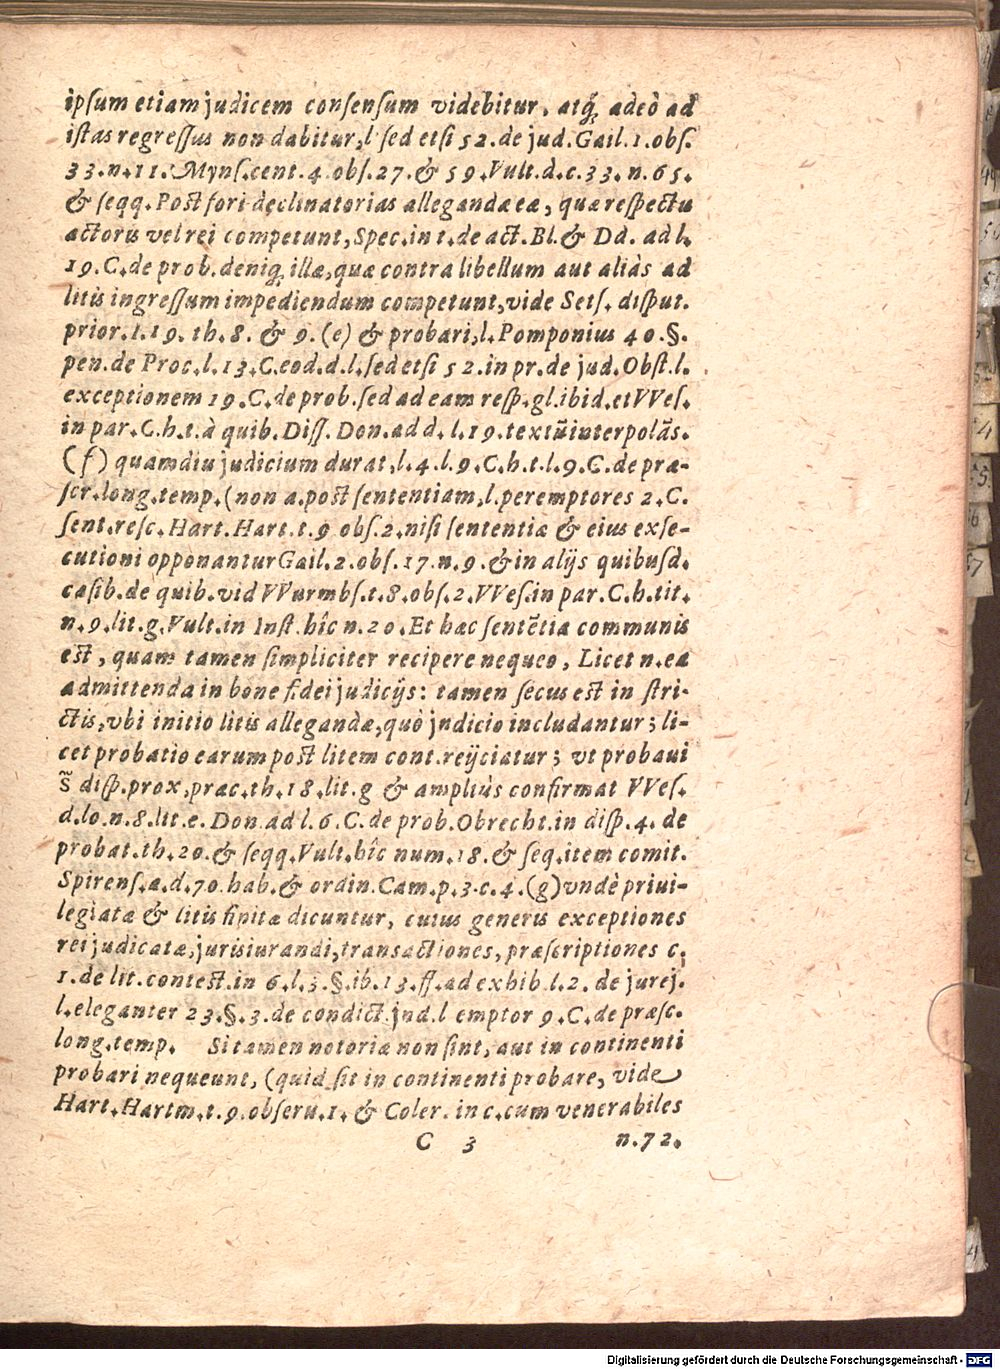 ipſum etiam judicem conſenſum videbitur, atq́; adeò ad
iſtas regreſſus non dabitur, l ſed etſi 52. de jud. Gail. 1. obſ.
33. n. 11. Mynſ. cent. 4. obſ. 27. & 59. Vult. d. c. 33. n. 65.
& ſeqq. Poſt fori declinatorias allegandæ eæ, quæ reſpectu
actoris vel rei competunt, Spec. in t. de act. Bl. & Dd. ad l.
19. C. de prob. deniq; illæ, quæ contra libellum aut aliàs ad
litis ingreſſum impediendum competunt, vide Setſ. diſput.
prior. l. 19. th. 8. & 9. (e) & probari, l. Pomponius 40. §.
pen. de Proc. l. 13. C. eod. d. l. ſed etſi 52. in pr. de jud. Obſt. l.
exceptionem 19. C. de prob. ſed ad eam reſp. gl. ibid. et VVeſ.
in par. C. h. t. à quib. Diſſ. Don. ad d. l. 19. textũ interpolãs.
(f) quamdiu judicium durat, l. 4. l. 9. C. h. t. l. 9. C. de præ-
ſcr. long. temp. (non a. poſt ſententiam, l. peremptores 2. C.
ſent. reſc. Hart. Hart. t. 9 obſ. 2. niſi ſententiæ & eius exſe-
cutioni opponantur Gail. 2. obſ. 17. n. 9. & in alijs quibuſd.
caſib. de quib. vid VVurmbſ. t. 8. obſ. 2. VVeſ. in par. C. h. tit.
n. 9. lit. g. Vult. in Inſt. hîc n. 20. Et hæc ſentẽtia communis
eſt, quam tamen ſimpliciter recipere nequeo, Licet n. ea
admittenda in bonę fidei judicijs: tamen ſecus eſt in ſtri-
ctis, vbi initio litis allegandæ, quò jndicio includantur; li-
cet probatio earum poſt litem cont. reijciatur; vt probaui
S̃ diſp. prox, præc. th. 18. lit. g & ampliùs confirmat VVeſ.
d. lo. n. 8. lit. e. Don. ad l. 6. C. de prob. Obrecht. in diſp. 4. de
probat. th. 20. & ſeqq. Vult. hîc num. 18. & ſeq. item comit.
Spirenſ. a. d. 70. hab. & ordin. Cam. p. 3. c. 4. (g) vndè priui-
legiatæ & litis finitæ dicuntur, cuius generis exceptiones
rei judicatæ, jurisiurandi, transactiones, præſcriptiones c.
1. de lit. conteſt. in 6. l. 3. §. ib. 13. ff. ad exhib l. 2. de jurej.
l. eleganter 23. §. 3. de condict. jnd. l emptor 9. C. de præſc.
long. temp. Si tamen notoriæ non ſint, aut in continenti
probari nequeunt, (quid ſit in continenti probare, vide
Hart. Hartm. t. 9. obſeru. 1. & Coler. in c. cum venerabiles
C 3 n. 72.
Digitalisierung gefördert durch die Deutsche Forschungsgemeinschaft - DFG